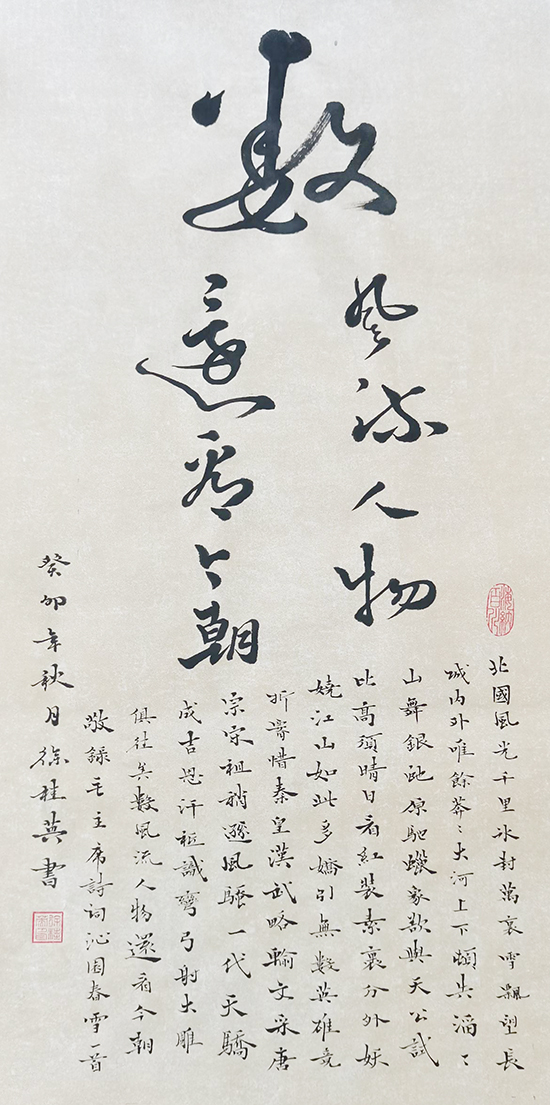 數
風流人物
還看今朝
海納百川
北國風光千里冰封萬裏雪飄望長
城内外唯餘莽〻大河上下頓失滔〻
山舞銀蛇原馳蠟象欲與天公試
比高須晴日看紅裝素裹分外妖
嬈江山如此多嬌引無數英雄競
折腰惜秦皇漢武略輸文采唐
宗宋祖稍遜風騷一代天驕
成吉思汗祗識彎弓射大雕
俱往矣數風流人物還看今朝
敬録毛主席詩词沁园春雪一首
癸卯年秋月徐桂英書